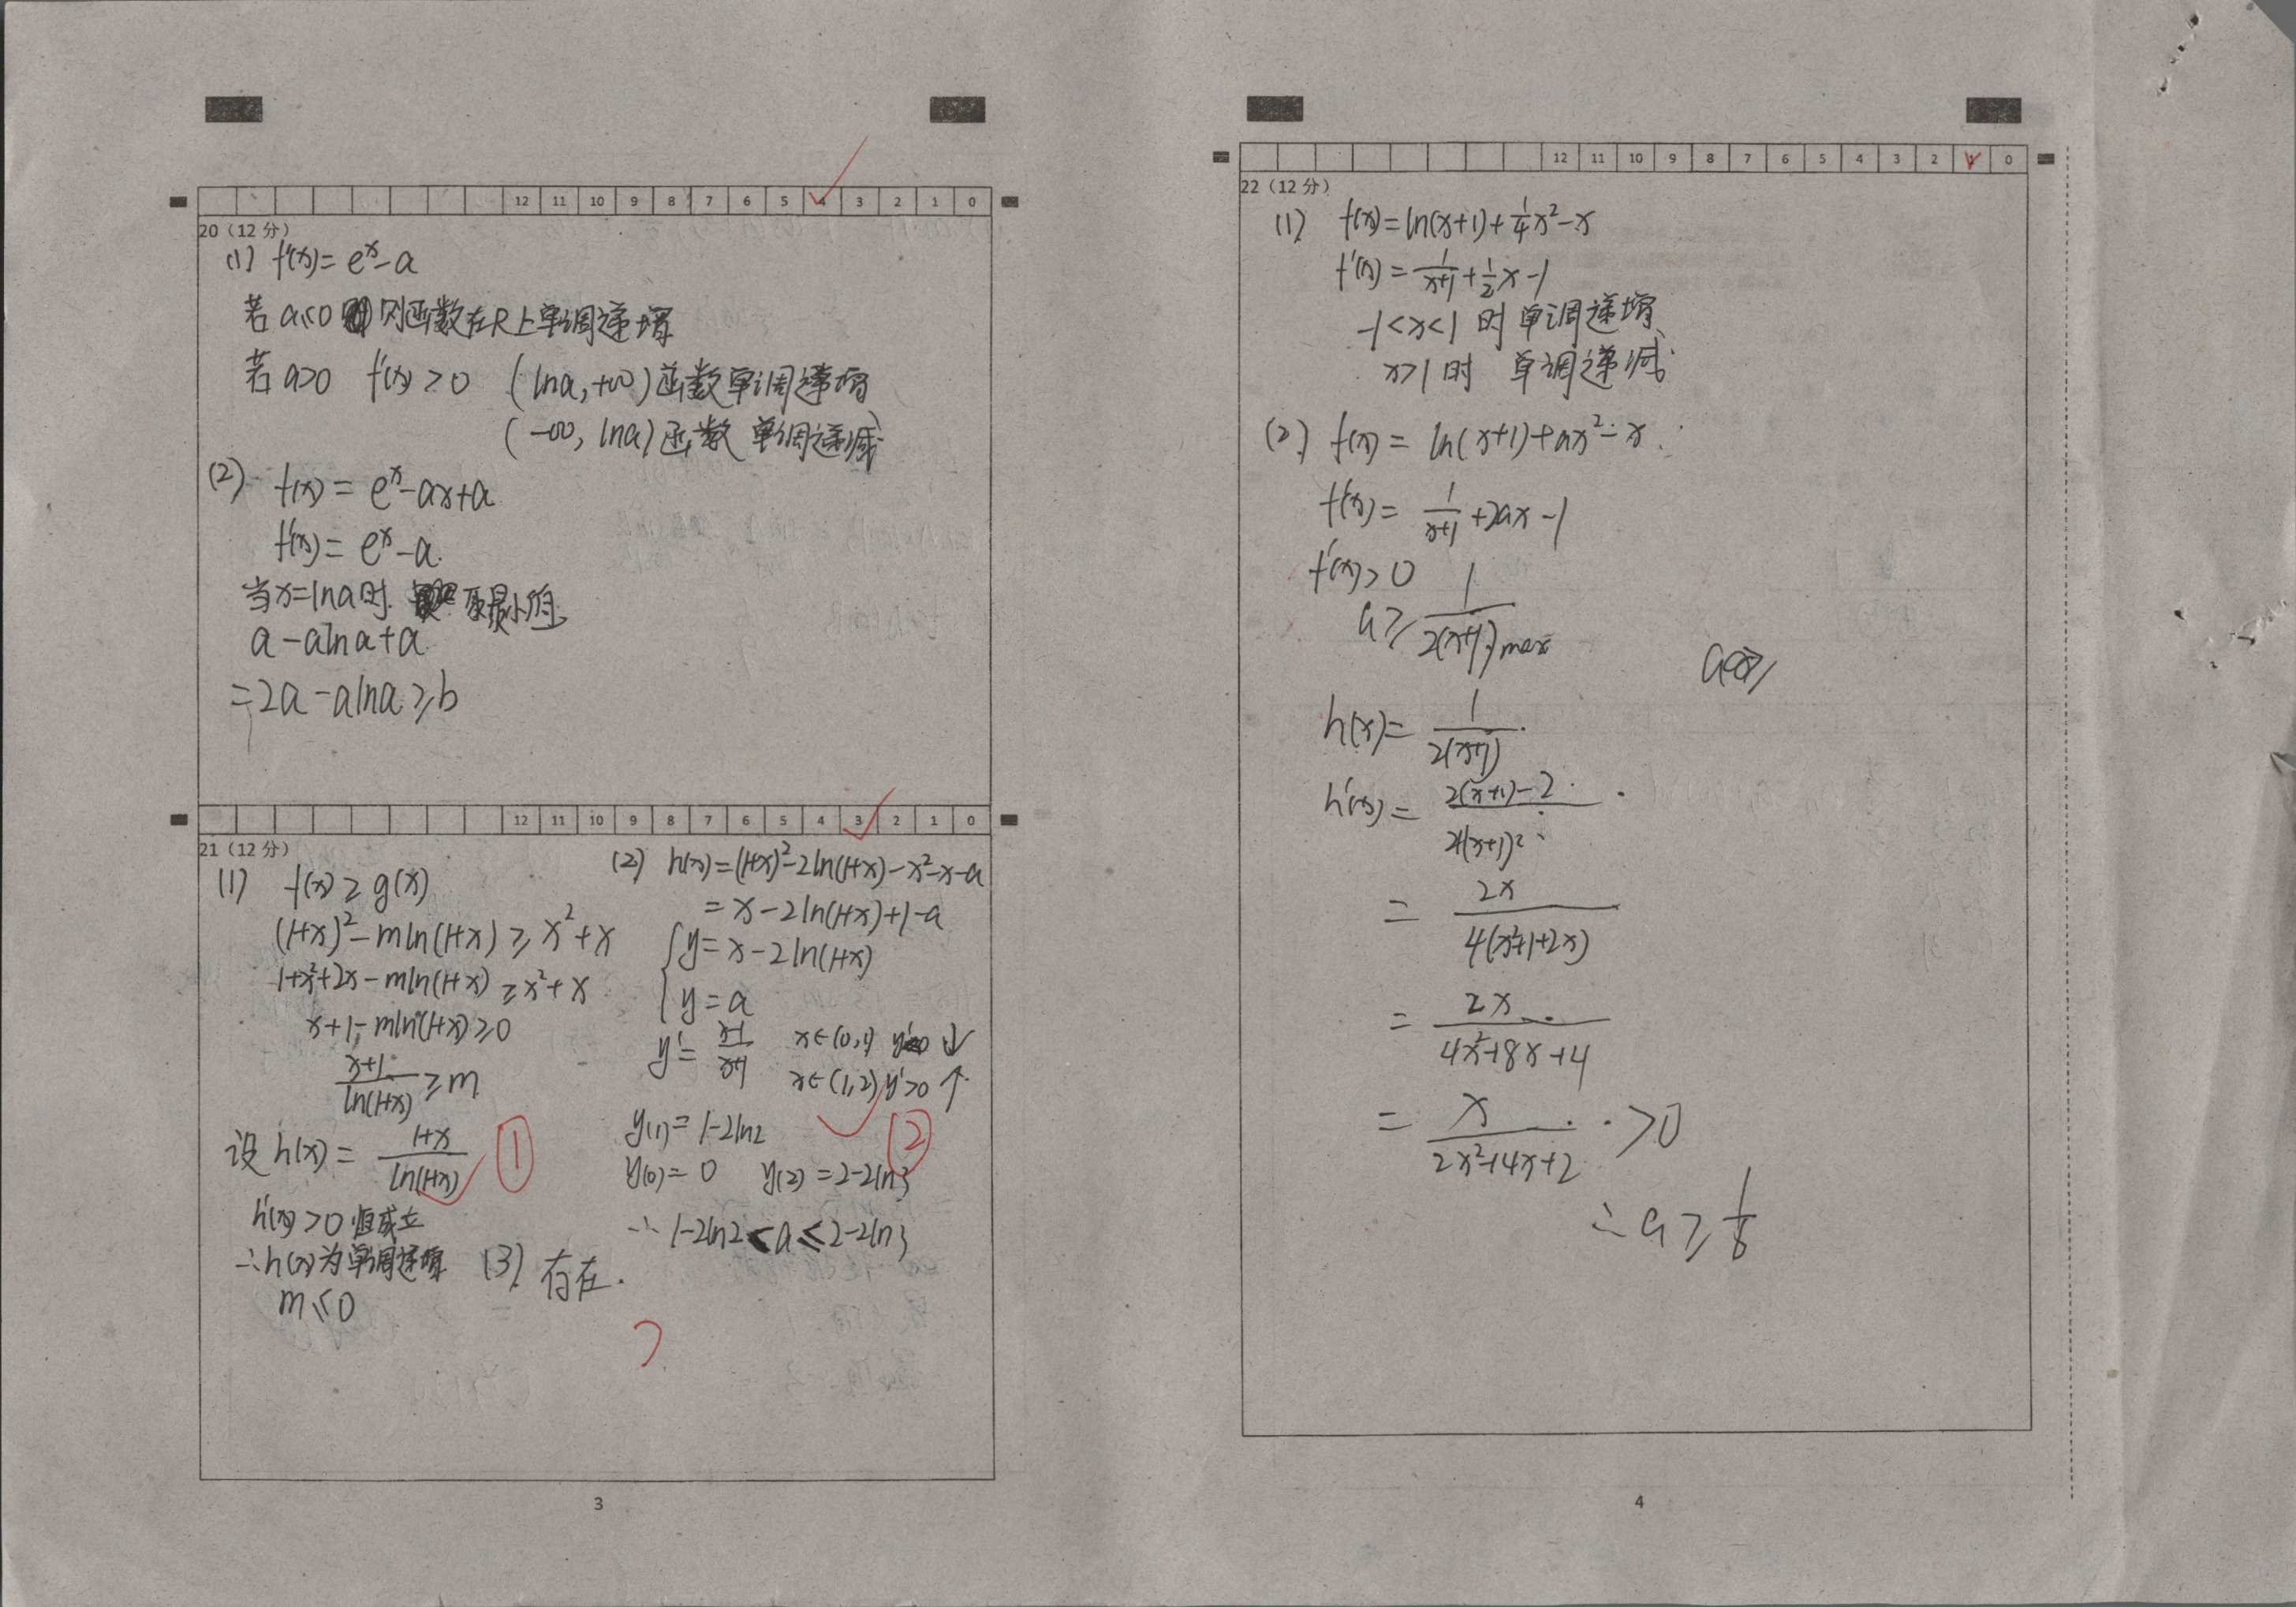 12 11 10 9 8 7 6 5 4 3 2 1 0
20（12 分）
(1) f'(x)= e^x - a
若 a≤0 则函数在R上单调递增
若 a>0 f'(x)>0 (lna,+∞)函数单调递增
(-∞, lna)函数 单调递减
(2) f(x) = e^x - ax + a
f'(x) = e^x - a.
当x=lna时 取最小值
a - alna + a
= 2a - alna ≥ b
12 11 10 9 8 7 6 5 4 3 2 1 0
21（12 分）
(1) f(x) ≥ g(x)
(1+x)^2 - mln(1+x) ≥ x^2 + x
1+x^2+2x - mln(1+x) ≥ x^2 + x
x+1 - mln(1+x) ≥ 0
\frac{x+1}{ln(1+x)} ≥ m
设 h(x) = \frac{1+x}{ln(1+x)} ①
h'(x) > 0 恒成立
∴h(x)为单调递增
m≤0
(2) h(x) = (1+x)^2 - 2ln(1+x) - x^2 - x - a
= x - 2ln(1+x) + 1 - a
{ y = x - 2ln(1+x)
y = a
y' = \frac{x-1}{x+1} x∈(0,1) y'<0 ↓
x∈(1,2) y'>0 ↑
y(1) = 1-2ln2 ②
y(0) = 0 y(2) = 2-2ln3
∴ 1-2ln2 < a ≤ 2-2ln3
(3) 存在.
3
12 11 10 9 8 7 6 5 4 3 2 1 0
22（12 分）
(1) f(x) = ln(x+1) + \frac{1}{4}x^2 - x
f'(x) = \frac{1}{x+1} + \frac{1}{2}x - 1
-1<x<1 时 单调递增
x>1 时 单调递减
(2) f(x) = ln(x+1) + ax^2 - x
f'(x) = \frac{1}{x+1} + 2ax - 1
f'(x) > 0
a ≥ \frac{1}{2(x+1)} max
h(x) = \frac{1}{2(x+1)}
h'(x) = \frac{2(x+1)-2}{4(x+1)^2}
= \frac{2x}{4(x^2+1+2x)}
= \frac{2x}{4x^2+8x+4}
= \frac{x}{2x^2+4x+2} > 0
∴ a ≥ \frac{1}{8}
4